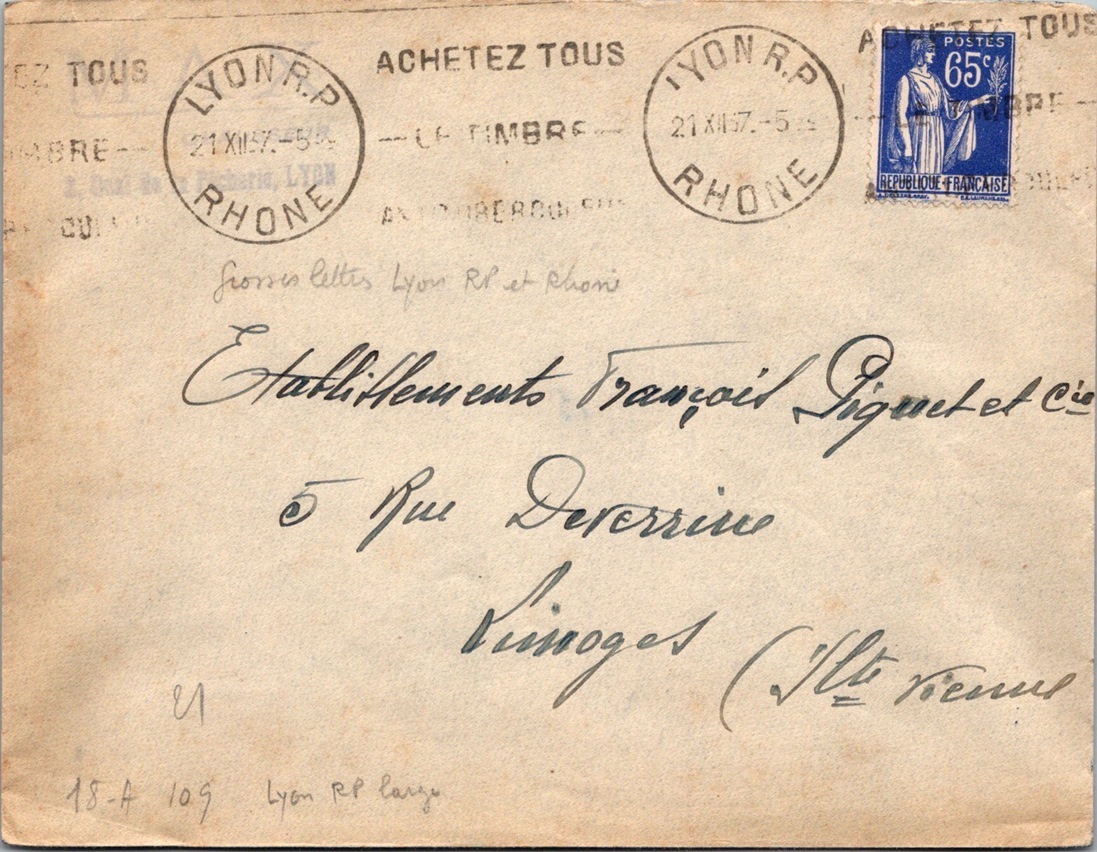 EZ TOUS
MBRE
LYON R.P
21 XII 37.-5
RHONE
ACHETEZ TOUS
LE TIMBRE
ANTITUBERCULEUX
LYON R.P
21 XII 37.-5
RHONE
ACHETEZ TOUS
TIMBRE
POSTES
65c
REPUBLIQUE FRANÇAISE
2, Quai de la Pêcherie, LYON
Grosses lettres Lyon RP et Rhone
Etablissements François Piquet et Cie
5 Rue Deverrine
Limoges
(Hte Vienne
21
18-A 109 Lyon RP large